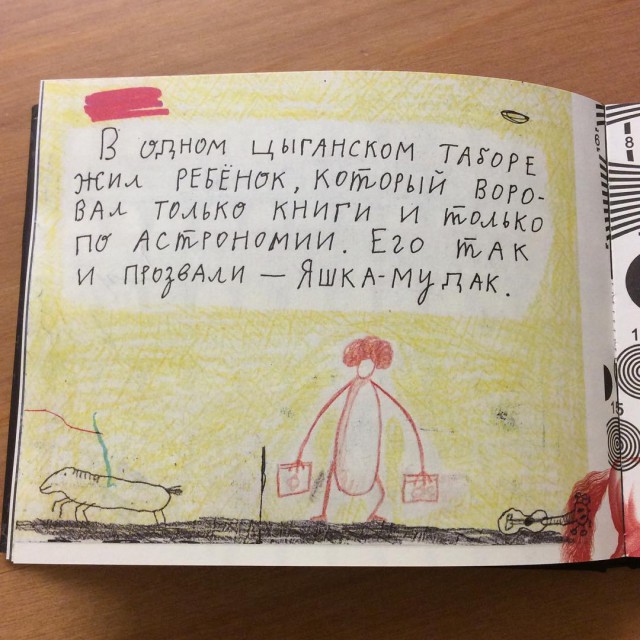 В одном цыганском таборе
жил ребёнок, который воро-
вал только книги и только
по астрономии. Его так
и прозвали — Яшка-мудак.
8
1
15